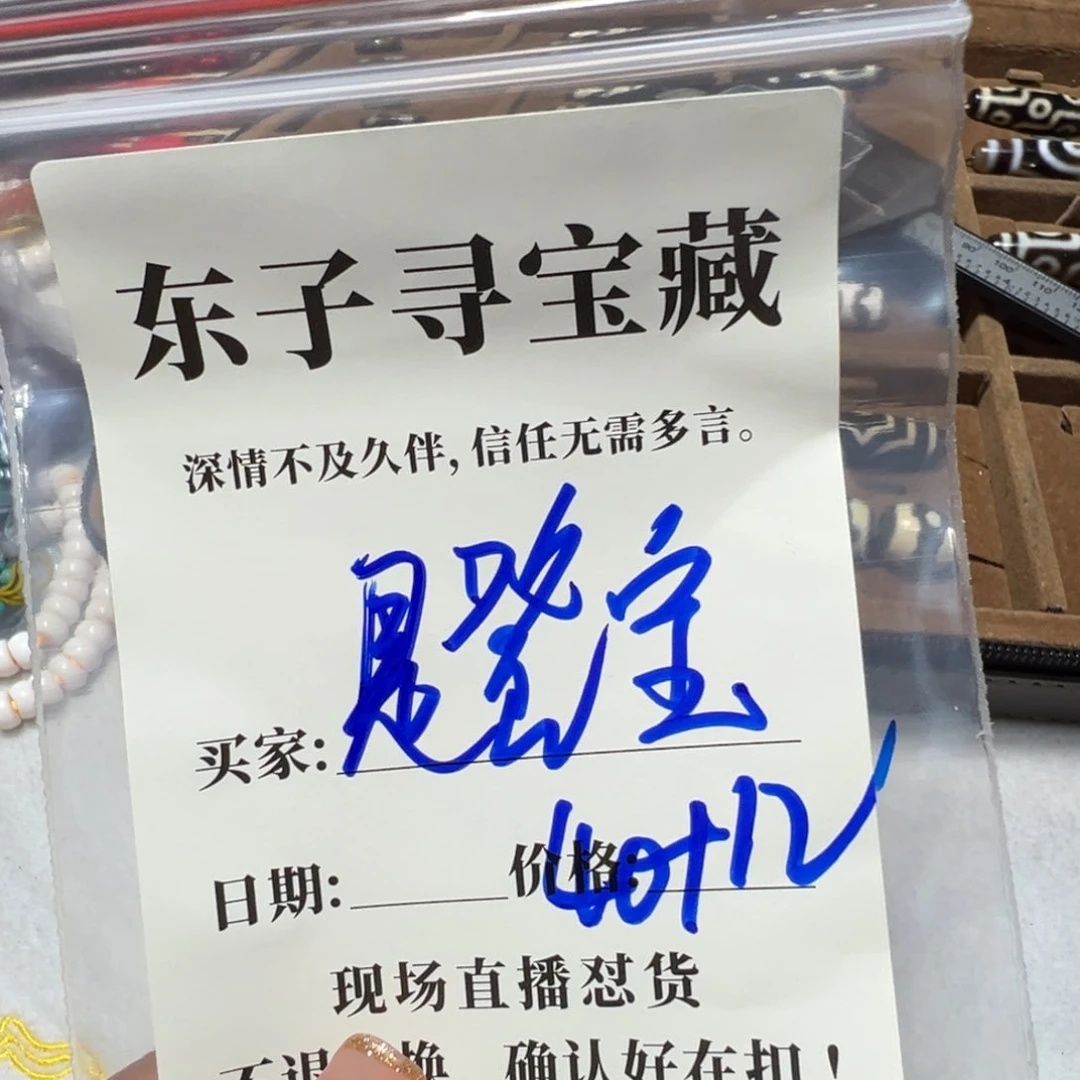 东子寻宝藏
深情不及久伴，信任无需多言。
买家: 是 宝
日期: 价格:
现场直播怼货
不退 换 确认好在扣！
90 100 110